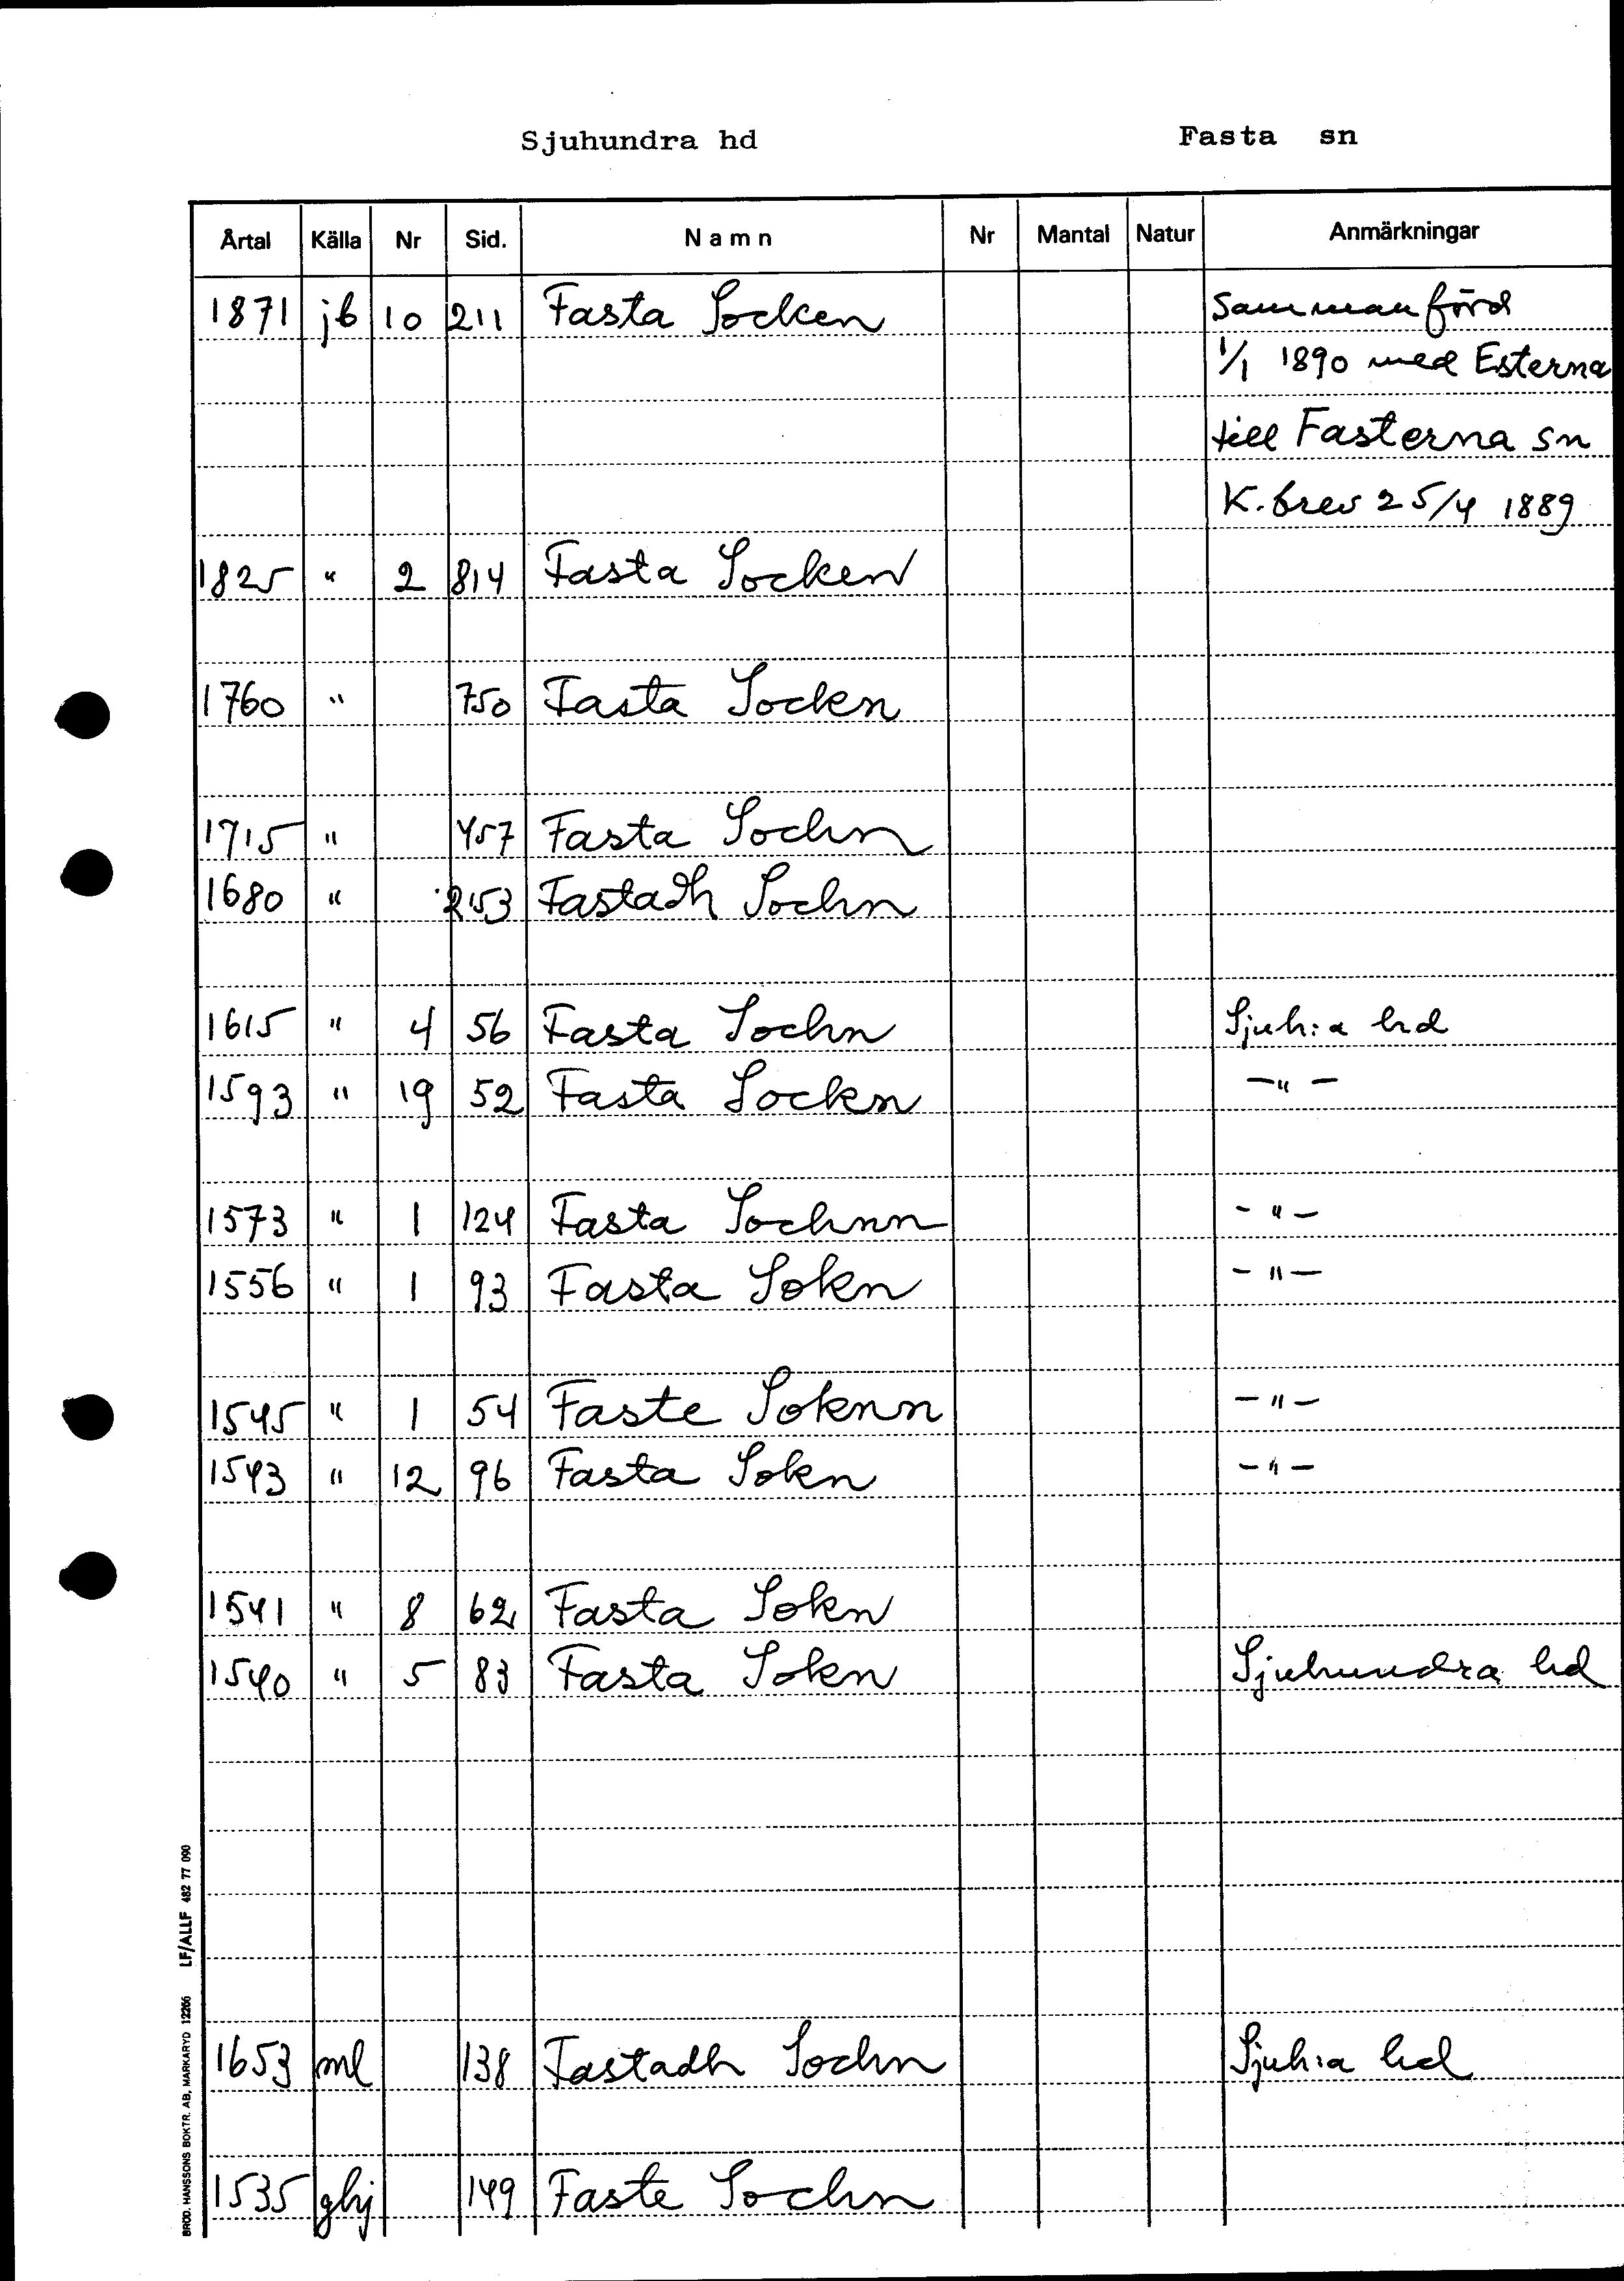 Sjuhundra hd Fasta sn
Årtal Källa Nr Sid. Namn Nr Mantal Natur Anmärkningar
1871 jb 10 211 Fasta Socken Sammanförd
1/1 1890 med Esterna
till Fasterna sn
K. brev 25/4 1889
1825 " 2 814 Fasta Socken
1760 " 750 Fasta Sockn
1715 " 457 Fasta Sochn
1680 " 253 Fastadh Sochn
1615 " 4 56 Fasta Sochn Sjuh:a hd
1593 " 19 52 Fasta Sockn -"-
1573 " 1 124 Fasta Sochnn -"-
1556 " 1 93 Fasta Sokn -"-
1545 " 1 54 Faste Soknn -"-
1543 " 12 96 Fasta Sokn -"-
1541 " 8 62 Fasta Sokn
1540 " 5 83 Fasta Sokn Sjuhundra hd
1653 ml 138 Fastadh Sochn Sjuh:a hd
1535 ghj 149 Faste Sochn
BROD. HANSSONS BOKTR. AB, MARKARYD 12266 LF/ALLF 482 77 090